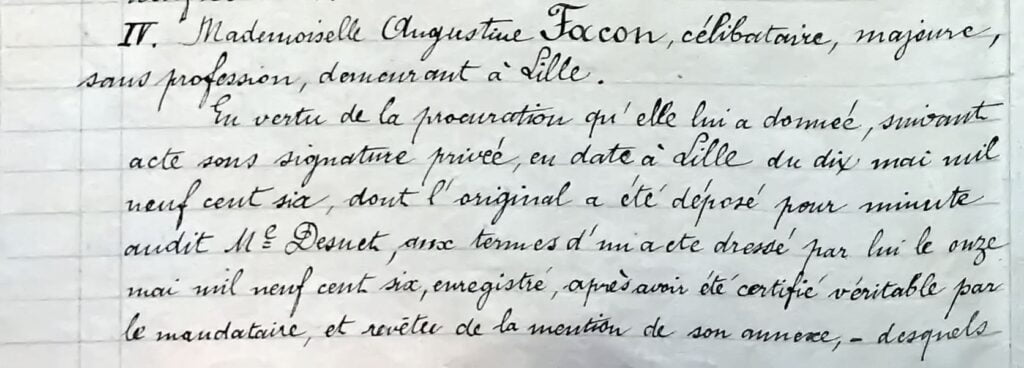 IV. Mademoiselle Augustine Facon, célibataire, majeure,
sans profession, demeurant à Lille.
En vertu de la procuration qu'elle lui a donnée, suivant
acte sous signature privée, en date à Lille du dix mai mil
neuf cent six, dont l'original a été déposé pour minute
audit Me Desuet, aux termes d'un acte dressé par lui le onze
mai mil neuf cent six, enregistré, après avoir été certifié véritable par
le mandataire, et revêtu de la mention de son annexe, - desquels